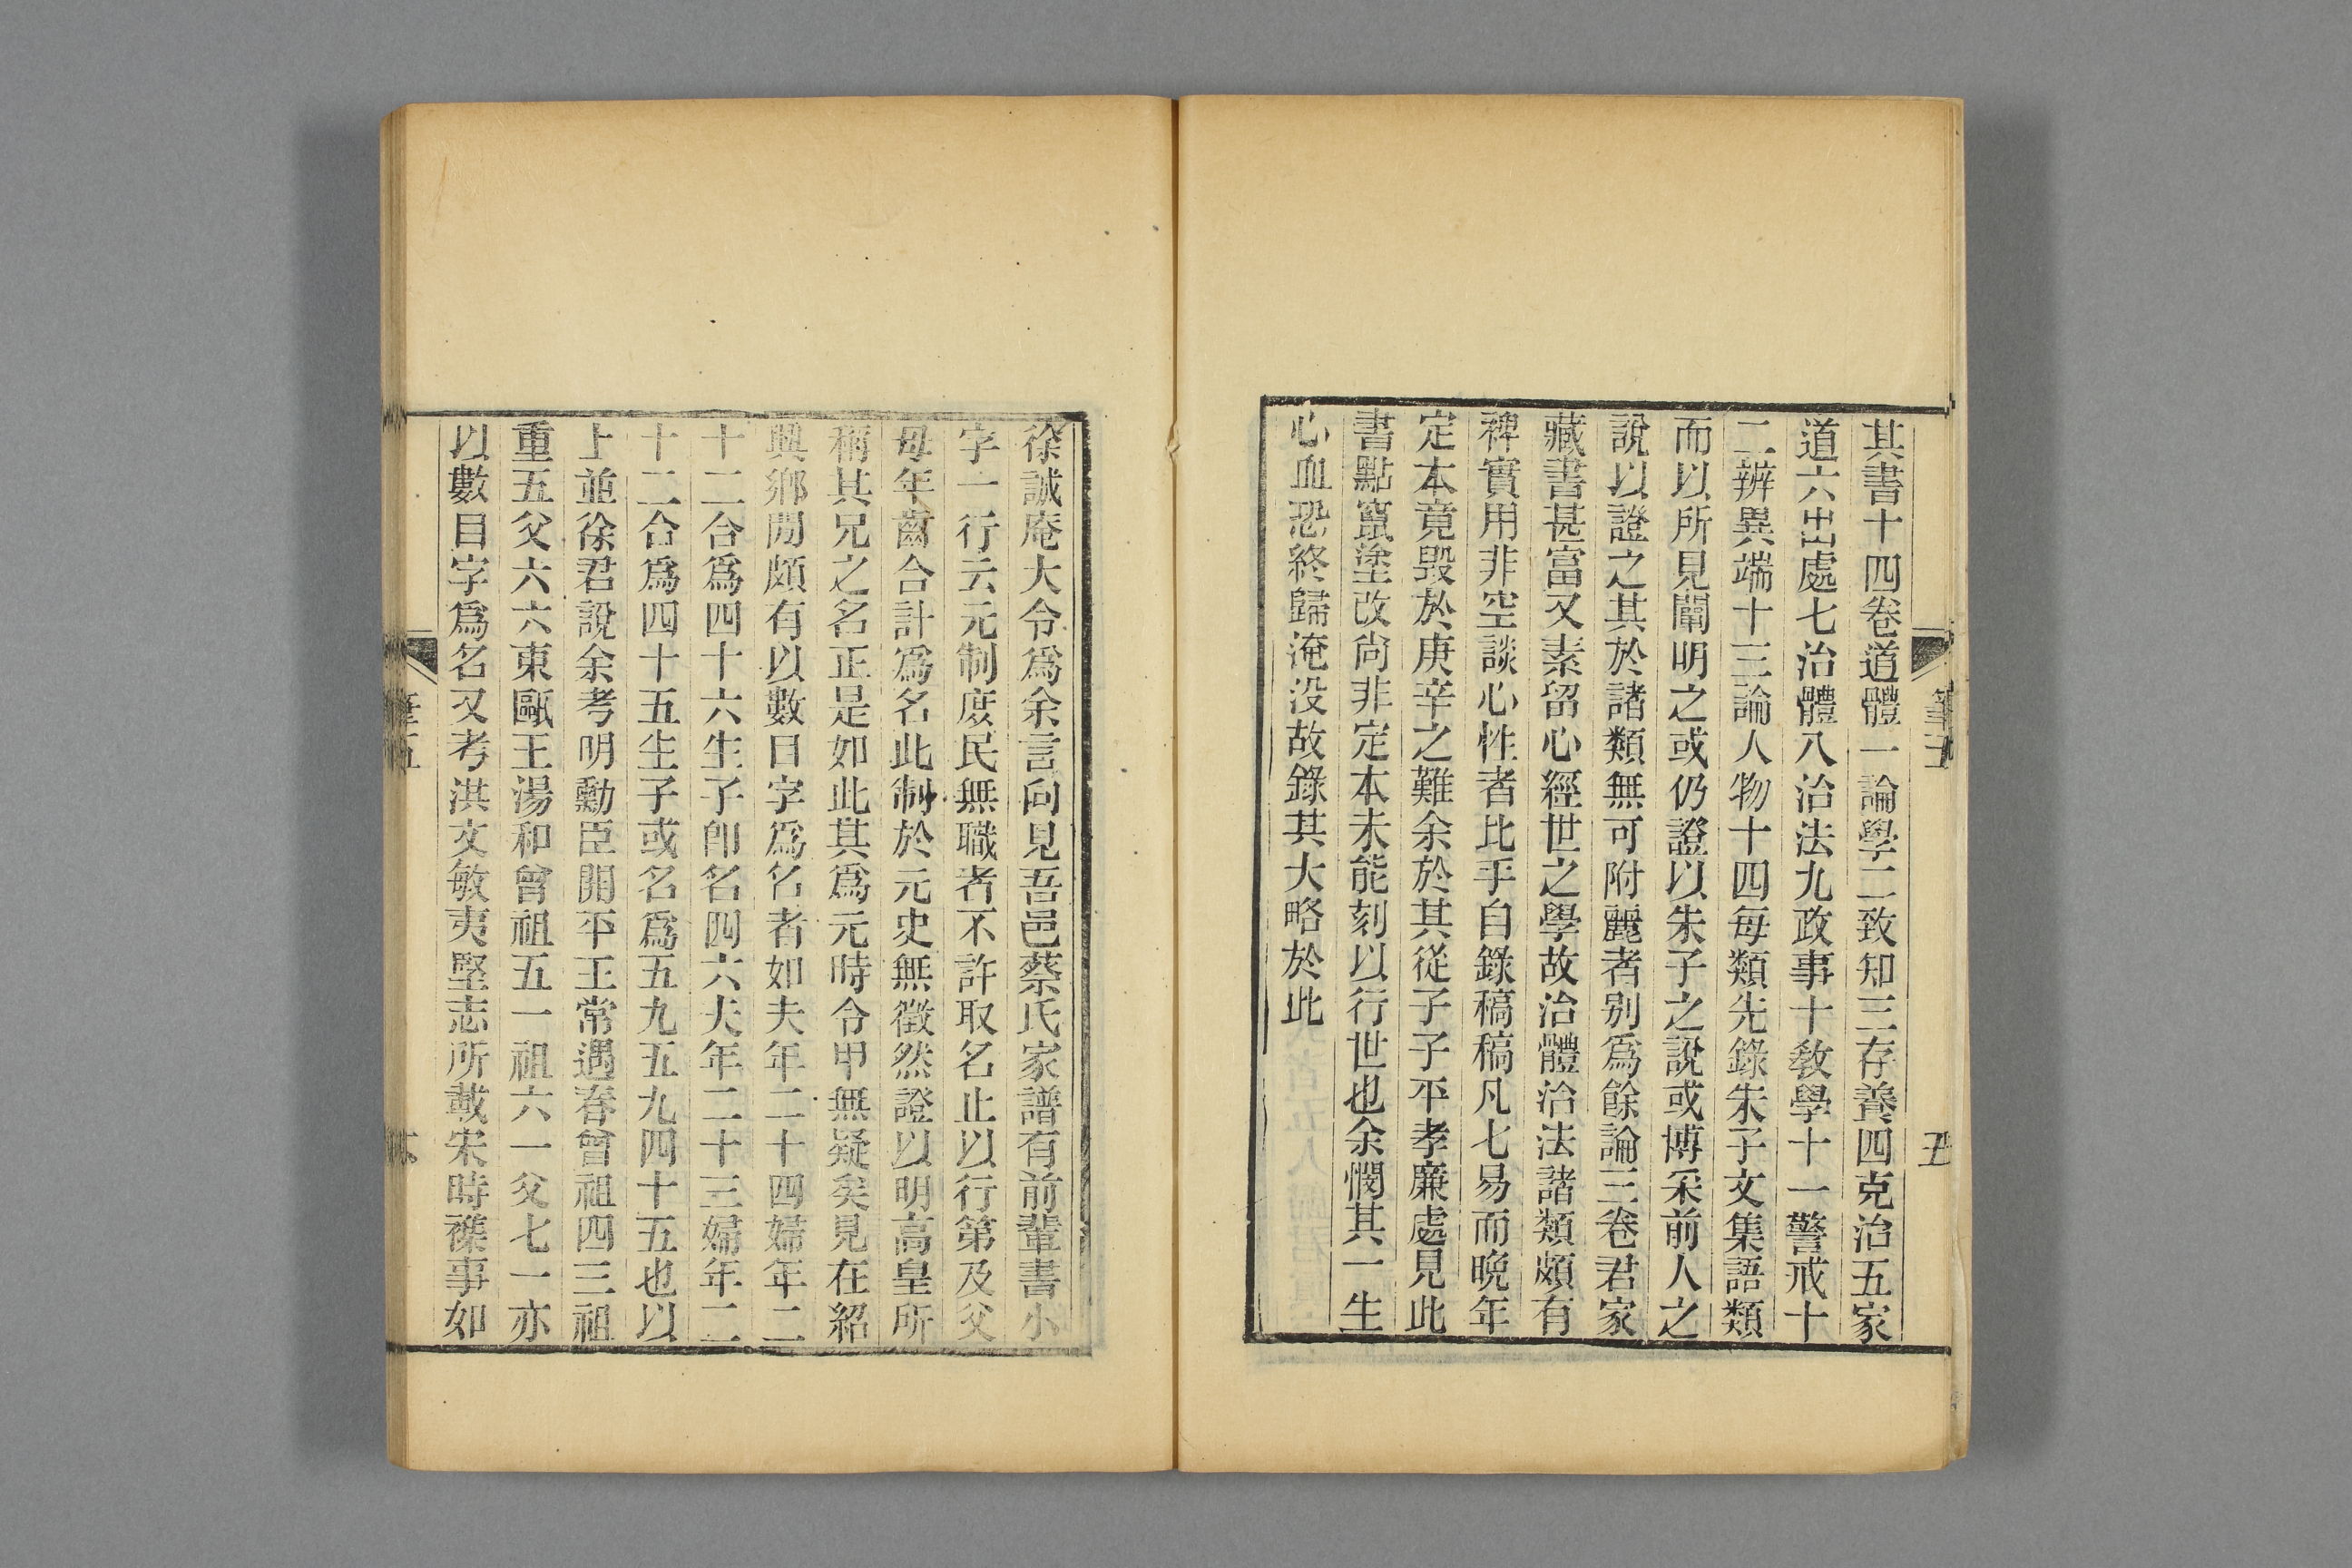 其書十四卷道體一論學二致知三存養四克治五家
道六出處七治體八治法九政事十敎學十一警戒十
二辨異端十三論人物十四每類先錄朱子文集語類
而以所見闡明之或仍證以朱子之說或博采前人之
說以證之其於諸類無可附麗者别爲餘論三卷君家
藏書甚富又素留心經世之學故治體治法諸類頗有
裨實用非空談心性者比乎自錄稿稿凡七易而晚年
定本竟毀於庚辛之難余於其從子子平孝廉處見此
書點竄塗改尙非定本未能刻以行世也余憫其一生
心血恐終歸淹没故錄其大略於此
筆五
五
徐誠庵大令爲余言向見吾邑蔡氏家譜有前輩書小
字一行云元制庶民無職者不許取名止以行第及父
母年齒合計爲名此制於元史無徵然證以明高皇所
稱其兄之名正是如此其爲元時令甲無疑矣見在紹
興鄉間頗有以數目字爲名者如夫年二十四婦年二
十二合爲四十六生子卽名四六夫年二十三婦年二
十二合爲四十五生子或名爲五九五九四十五也以
上並徐君說余考明勳臣開平王常遇春曾祖四三祖
重五父六六東甌王湯和曾祖五一祖六一父七一亦
以數目字爲名又考洪文敏夷堅志所載宋時襍事如
筆五